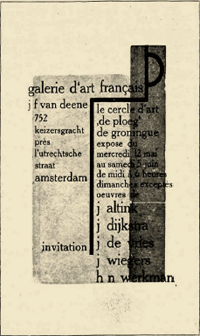 galerie d'art français
j f van deene
752
keizersgracht
près
l'utrechtsche
straat
amsterdam
invitation
le cercle d'art
,de ploeg'
de groningue
expose du
mercredi 12 mai
au samedi 5 juin
de midi à 6 heures
dimanches exceptés
oeuvres de
j altink
j dijkstra
j de vries
j wiegers
h n werkman